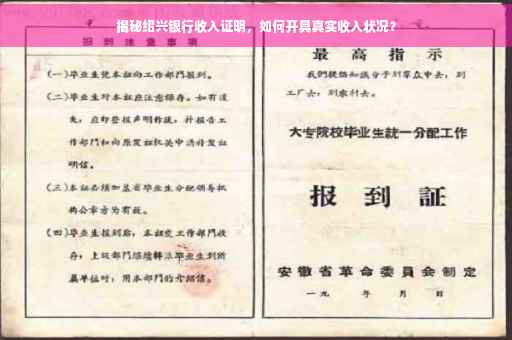 揭秘绍兴银行收入证明，如何开具真实收入状况？
报到注意事项
(一)毕业生凭本证向工作部门报到。
(二)毕业生对本证应注意保存。如有遗
失，应即登报声明作废，并报告工
作部门和向原发证机关申请补发证
明信。
(三)本证必须加盖省毕业生分配领导机
构公章方为有效。
(四)毕业生报到后，本证交工作部门收
存，上级部门
属单位时，用本部门的介绍信。
最高指示
我们提倡知识分子到群众中去，到
工厂去，到农村去。
大专院校毕业生統一分配工作
报到証
安徽省革命委員会制定
一九 年 月 日